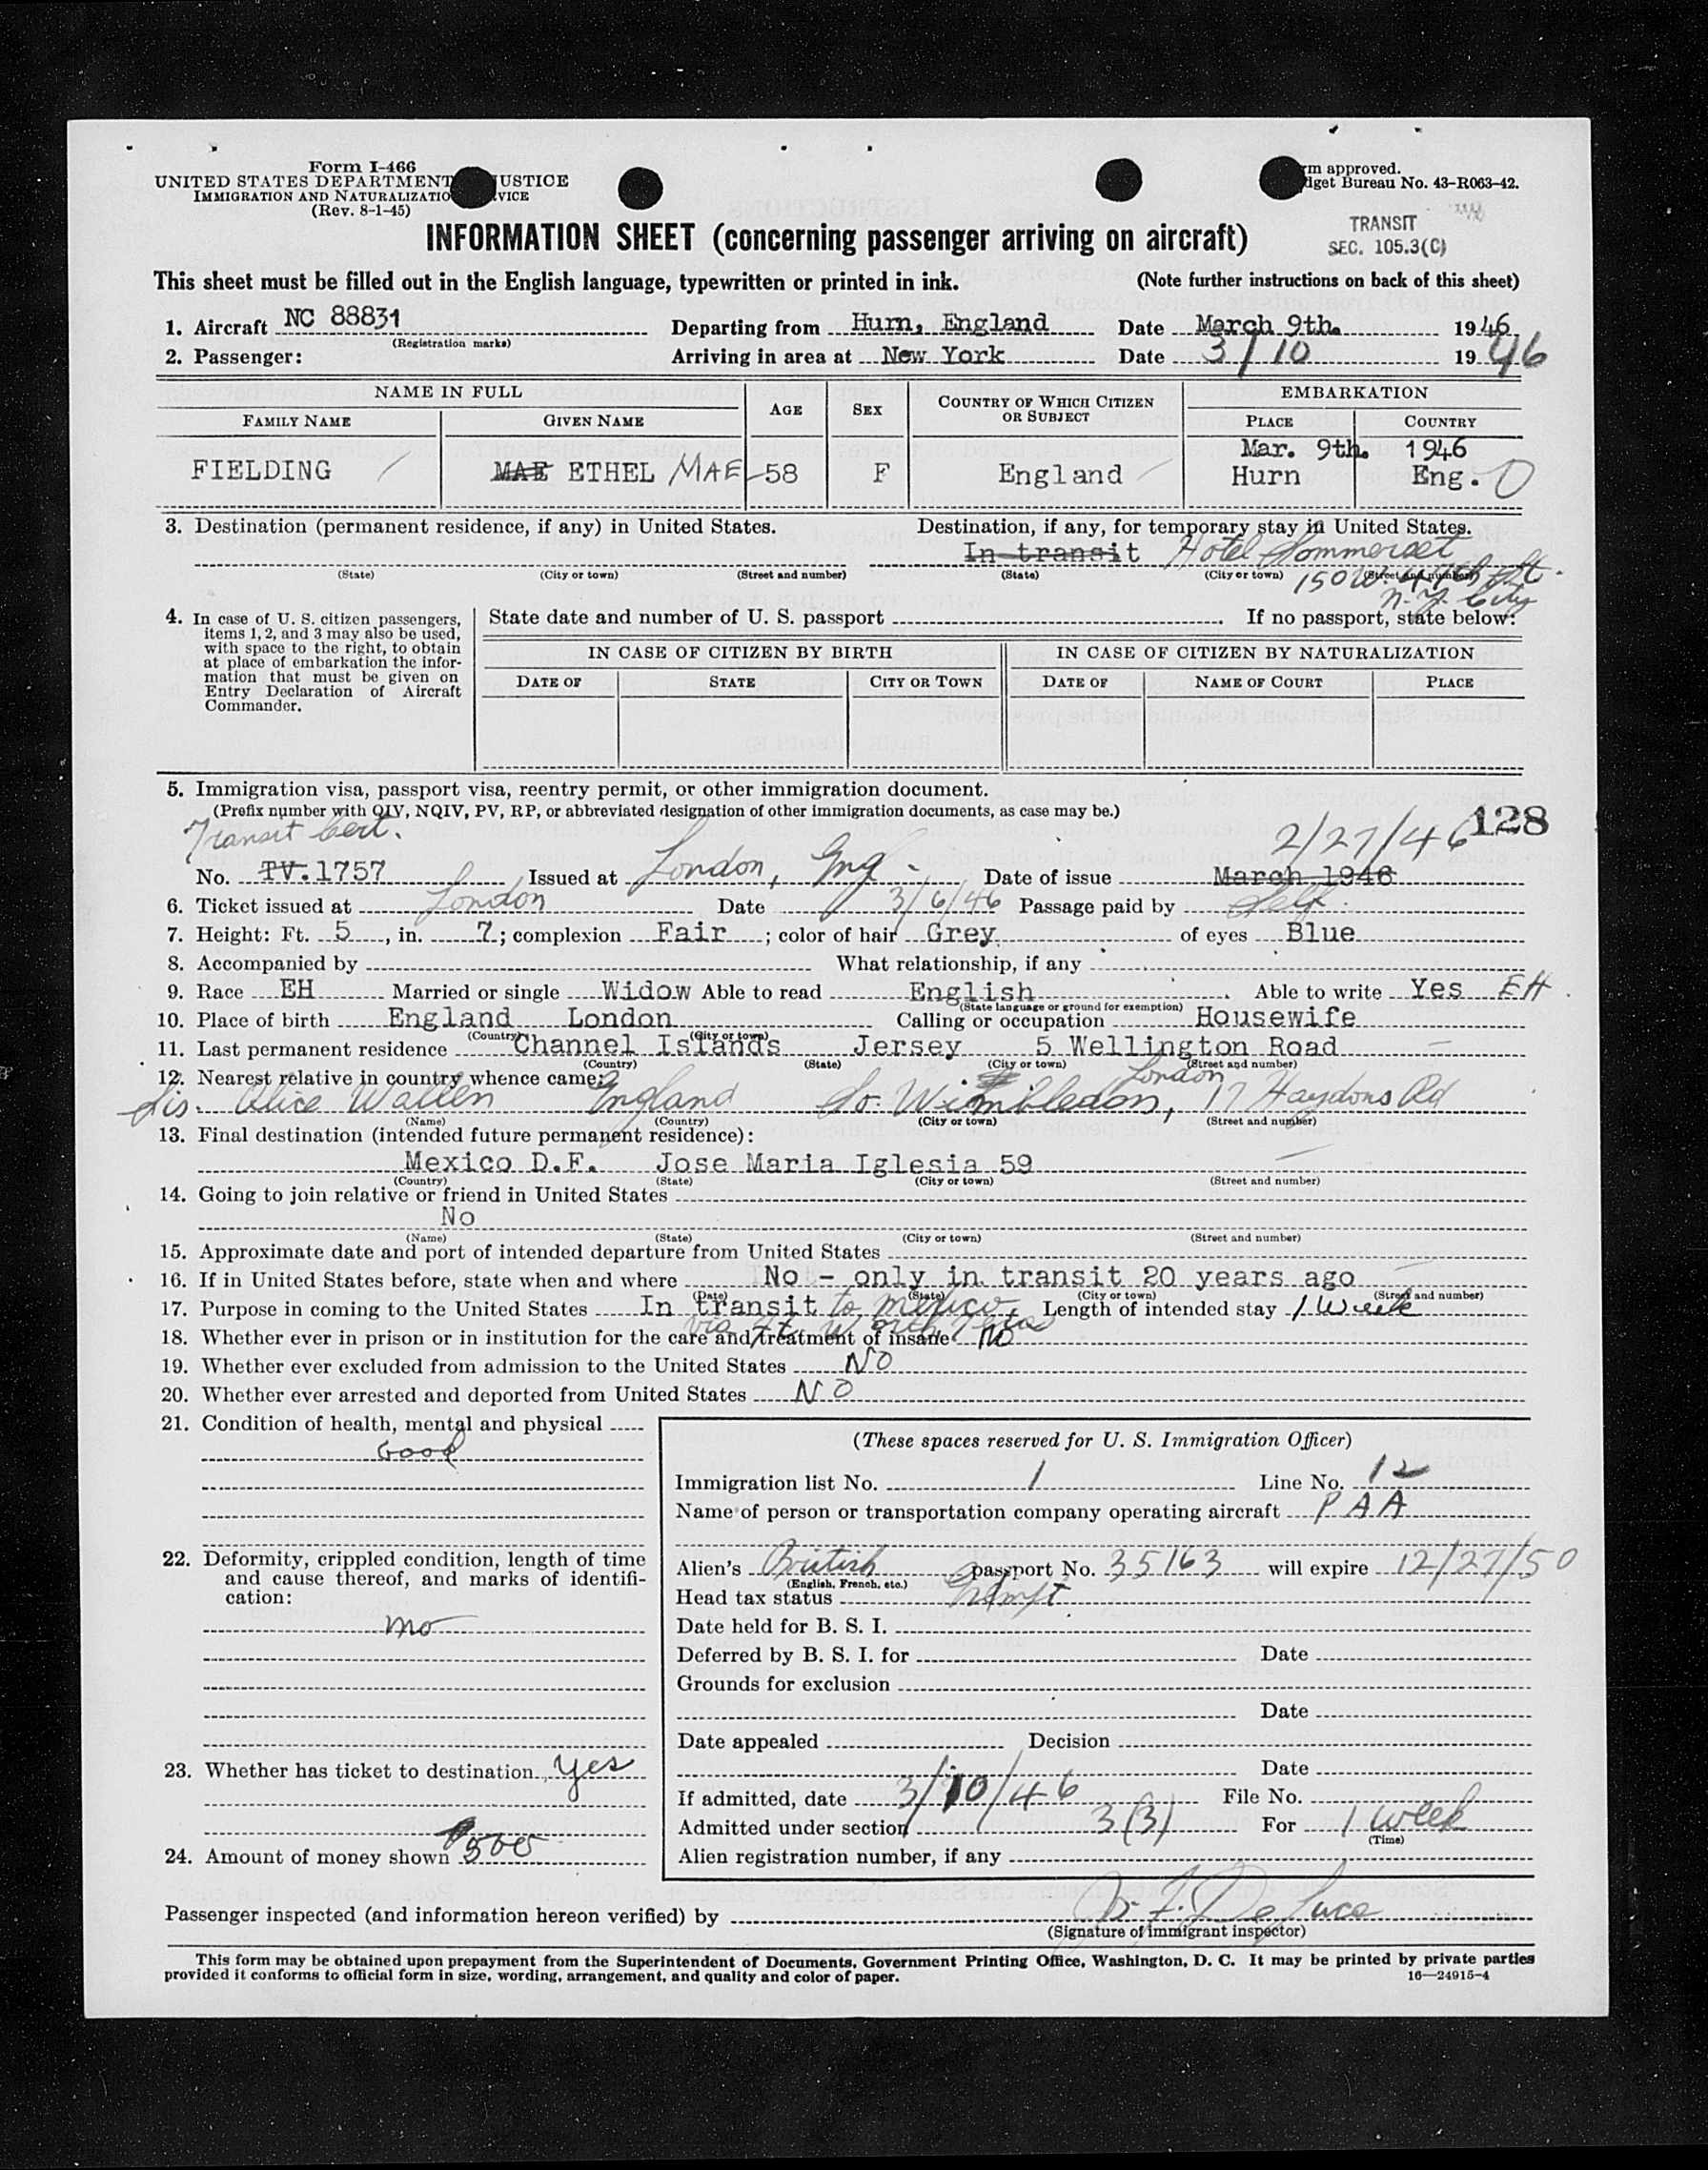 Form I-466
UNITED STATES DEPARTMENT USTICE
IMMIGRATION AND NATURALIZATIO VICE
(Rev. 8-1-45)
rm approved.
dget Bureau No. 43-R063-42.
TRANSIT
SEC. 105.3(C)
INFORMATION SHEET (concerning passenger arriving on aircraft)
This sheet must be filled out in the English language, typewritten or printed in ink. (Note further instructions on back of this sheet)
1. Aircraft NC 88831 Departing from Hurn, England Date March 9th. 1946
(Registration marks)
2. Passenger: Arriving in area at New York Date 3/10 1946
NAME IN FULL AGE SEX COUNTRY OF WHICH CITIZEN OR SUBJECT EMBARKATION
FAMILY NAME GIVEN NAME PLACE COUNTRY
Mar. 9th. 1946
FIELDING MAE ETHEL MAE 58 F England Hurn Eng. O
3. Destination (permanent residence, if any) in United States. Destination, if any, for temporary stay in United States.
In transit Hotel Sommerset
(State) (City or town) (Street and number) (State) (City or town) (Street and number)
150 W. 47th St.
N.Y. City
4. In case of U. S. citizen passengers, items 1, 2, and 3 may also be used, with space to the right, to obtain at place of embarkation the information that must be given on Entry Declaration of Aircraft Commander.
State date and number of U. S. passport . If no passport, state below:
IN CASE OF CITIZEN BY BIRTH IN CASE OF CITIZEN BY NATURALIZATION
DATE OF STATE CITY OR TOWN DATE OF NAME OF COURT PLACE
5. Immigration visa, passport visa, reentry permit, or other immigration document.
(Prefix number with QIV, NQIV, PV, RP, or abbreviated designation of other immigration documents, as case may be.)
128
Transit Cert. 2/27/46
No. TV. 1757 Issued at London, Eng. Date of issue March 1946
6. Ticket issued at London Date 3/6/46 Passage paid by Self
7. Height: Ft. 5, in. 7; complexion Fair; color of hair Grey of eyes Blue
8. Accompanied by What relationship, if any
9. Race EH Married or single Widow Able to read English. Able to write Yes EH
(State language or ground for exemption)
10. Place of birth England London Calling or occupation Housewife
(Country) (City or town)
11. Last permanent residence Channel Islands Jersey 5 Wellington Road
(Country) (State) (City or town) (Street and number)
12. Nearest relative in country whence came:
Sis. Alice Wallen England So. Wimbledon, London 17 Haydons Rd
(Name) (Country) (City or town) (Street and number)
13. Final destination (intended future permanent residence):
Mexico D.F. Jose Maria Iglesia 59
(Country) (State) (City or town) (Street and number)
14. Going to join relative or friend in United States
No
(Name) (State) (City or town) (Street and number)
15. Approximate date and port of intended departure from United States
16. If in United States before, state when and where No - only in transit 20 years ago
(Date) (State) (City or town) (Street and number)
17. Purpose in coming to the United States In transit to Mexico, Length of intended stay 1 Week
via Ft. Worth Texas
18. Whether ever in prison or in institution for the care and treatment of insane No
19. Whether ever excluded from admission to the United States NO
20. Whether ever arrested and deported from United States NO
21. Condition of health, mental and physical
Good
22. Deformity, crippled condition, length of time and cause thereof, and marks of identification:
no
23. Whether has ticket to destination yes
24. Amount of money shown $500
(These spaces reserved for U. S. Immigration Officer)
Immigration list No. 1 Line No. 12
Name of person or transportation company operating aircraft PAA
Alien's British passport No. 35163 will expire 12/27/50
(English, French, etc.)
Head tax status Exempt
Date held for B. S. I.
Deferred by B. S. I. for Date
Grounds for exclusion
Date
Date appealed Decision
Date
If admitted, date 3/10/46 File No.
Admitted under section 3(3) For 1 week
(Time)
Alien registration number, if any
Passenger inspected (and information hereon verified) by J. F. De Luca
(Signature of immigrant inspector)
This form may be obtained upon prepayment from the Superintendent of Documents, Government Printing Office, Washington, D. C. It may be printed by private parties
provided it conforms to official form in size, wording, arrangement, and quality and color of paper. 16—24915-4